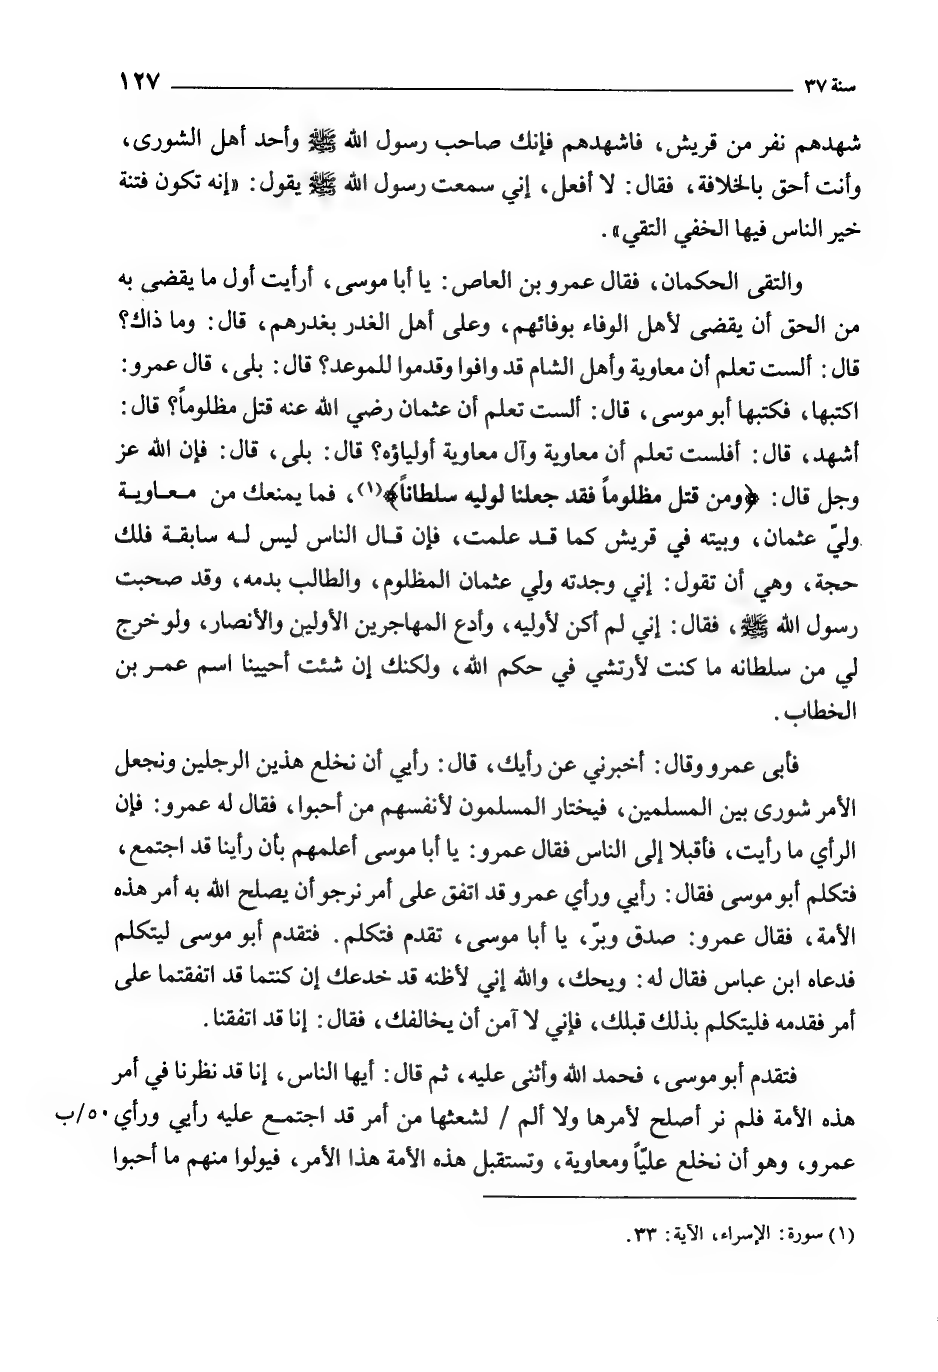 سنة ٣٧ ١٢٧
شهدهم نفر من قريش، فاشهدهم فإنك صاحب رسول الله ﷺ وأحد أهل الشورى،
وأنت أحق بالخلافة، فقال: لا أفعل، إني سمعت رسول الله ﷺ يقول: «إنه تكون فتنة
خير الناس فيها الخفي التقي».
والتقى الحكمان، فقال عمرو بن العاص: يا أبا موسى، أرأيت أول ما يقضى به
من الحق أن يقضى لأهل الوفاء بوفائهم، وعلى أهل الغدر بغدرهم، قال: وما ذاك؟
قال: ألست تعلم أن معاوية وأهل الشام قد وافوا وقدموا للموعد؟ قال: بلى، قال عمرو:
اكتبها، فكتبها أبو موسى، قال: ألست تعلم أن عثمان رضي الله عنه قتل مظلوماً؟ قال:
أشهد، قال: أفلست تعلم أن معاوية وآل معاوية أولياؤه؟ قال: بلى، قال: فإن الله عز
وجل قال: ﴿ومن قتل مظلوماً فقد جعلنا لوليه سلطاناً﴾(١)، فما يمنعك من معاوية
وليّ عثمان، وبيته في قريش كما قد علمت، فإن قال الناس ليس له سابقة فلك
حجة، وهي أن تقول: إني وجدته ولي عثمان المظلوم، والطالب بدمه، وقد صحبت
رسول الله ﷺ، فقال: إني لم أكن لأوليه، وأدع المهاجرين الأولين والأنصار، ولو خرج
لي من سلطانه ما كنت لأرتشي في حكم الله، ولكنك إن شئت أحيينا اسم عمر بن
الخطاب.
فأبى عمرو وقال: أخبرني عن رأيك، قال: رأيي أن نخلع هذين الرجلين ونجعل
الأمر شورى بين المسلمين، فيختار المسلمون لأنفسهم من أحبوا، فقال له عمرو: فإن
الرأي ما رأيت، فأقبلا إلى الناس فقال عمرو: يا أبا موسى أعلمهم بأن رأينا قد اجتمع،
فتكلم أبو موسى فقال: رأيي ورأي عمرو قد اتفق على أمر نرجو أن يصلح الله به أمر هذه
الأمة، فقال عمرو: صدق وبرّ، يا أبا موسى، تقدم فتكلم. فتقدم أبو موسى ليتكلم
فدعاه ابن عباس فقال له: ويحك، والله إني لأظنه قد خدعك إن كنتما قد اتفقتما على
أمر فقدمه فليتكلم بذلك قبلك، فإني لا آمن أن يخالفك، فقال: إنا قد اتفقنا.
فتقدم أبو موسى، فحمد الله وأثنى عليه، ثم قال: أيها الناس، إنا قد نظرنا في أمر
هذه الأمة فلم نر أصلح لأمرها ولا ألم / لشعثها من أمر قد اجتمع عليه رأيي ورأي ٥٠/ب
عمرو، وهو أن نخلع عليّاً ومعاوية، وتستقبل هذه الأمة هذا الأمر، فيولوا منهم ما أحبوا
(١) سورة: الإسراء، الآية: ٣٣.